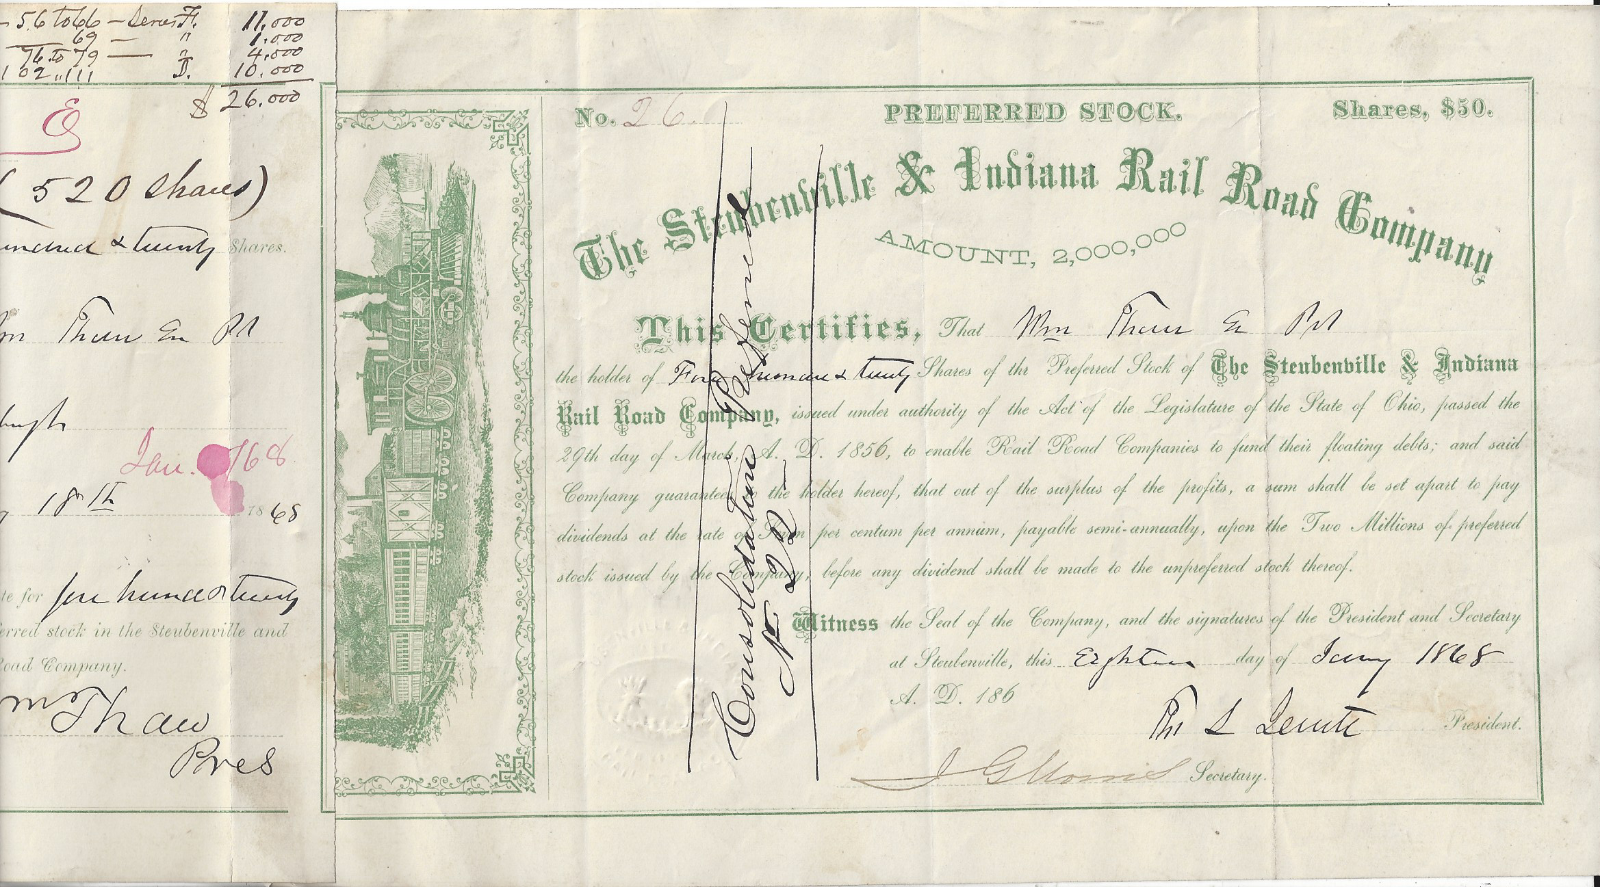 56 to 66 — Series A. 11,000
69 — " 1,000
76 to 79 — " 4,000
102 „ 111 D. 10,000
$ 26,000
(520 Shares)
undred & twenty Shares.
Thaw
burgh
Jan. 68
18th 1868
te for four hund & twenty
erred stock in the Steubenville and
oad Company.
Wm Thaw
Pres
No. 26. PREFERRED STOCK. Shares, $50.
The Steubenville & Indiana Rail Road Company
AMOUNT, 2,000,000
This Certifies, That Wm Thaw
the holder of Five hundred & twenty Shares of the Preferred Stock of The Steubenville & Indiana
Rail Road Company, issued under authority of the Act of the Legislature of the State of Ohio, passed the
29th day of March, A. D. 1856, to enable Rail Road Companies to fund their floating debts; and said
Company guarantee to the holder hereof, that out of the surplus of the profits, a sum shall be set apart to pay
dividends at the rate of Seven per centum per annum, payable semi-annually, upon the Two Millions of preferred
stock issued by the Company, before any dividend shall be made to the unpreferred stock thereof.
Witness the Seal of the Company, and the signatures of the President and Secretary
at Steubenville, this Eighteen day of Jany 1868
A. D. 186
President.
J G Morris Secretary.
Consolidation Preferred
No 22